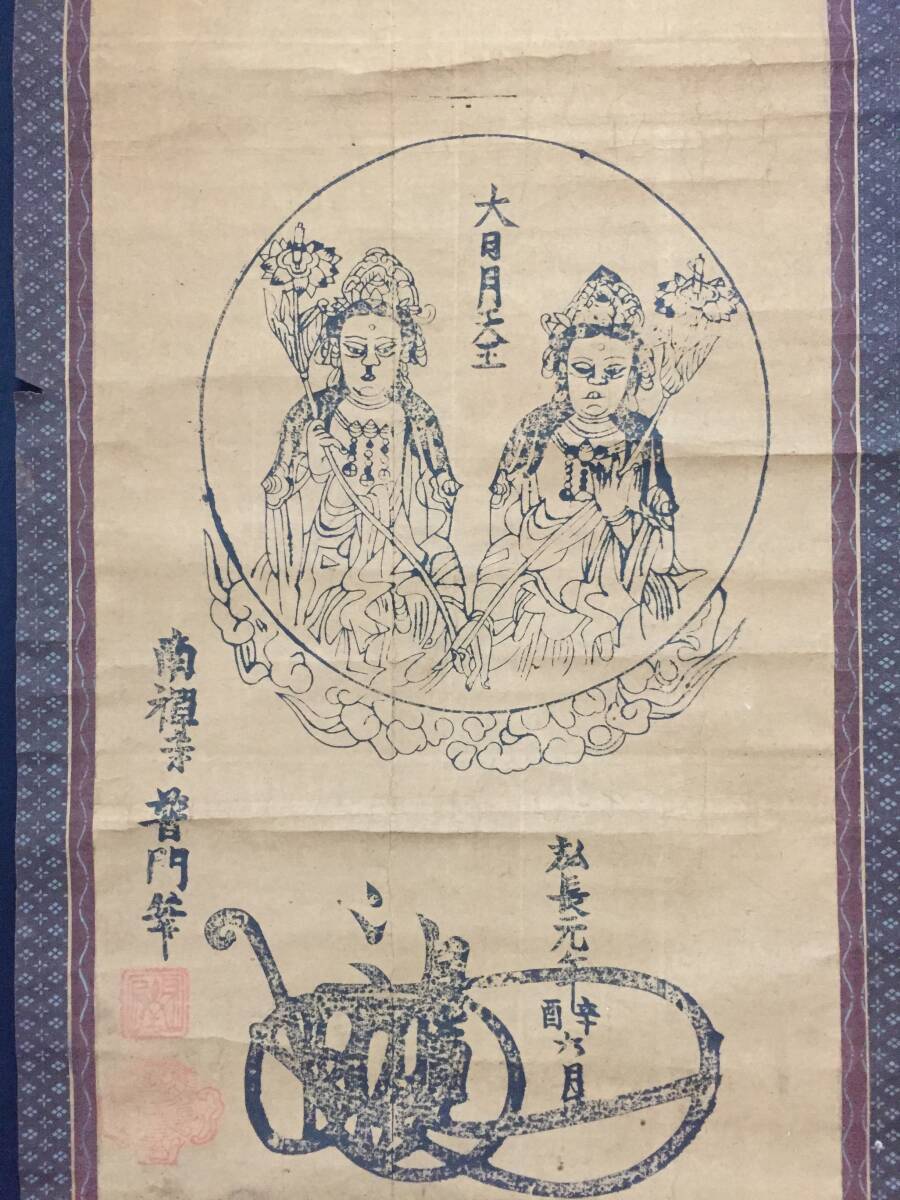 大日月天王
弘長元年辛酉六月
南禅寺普門筆